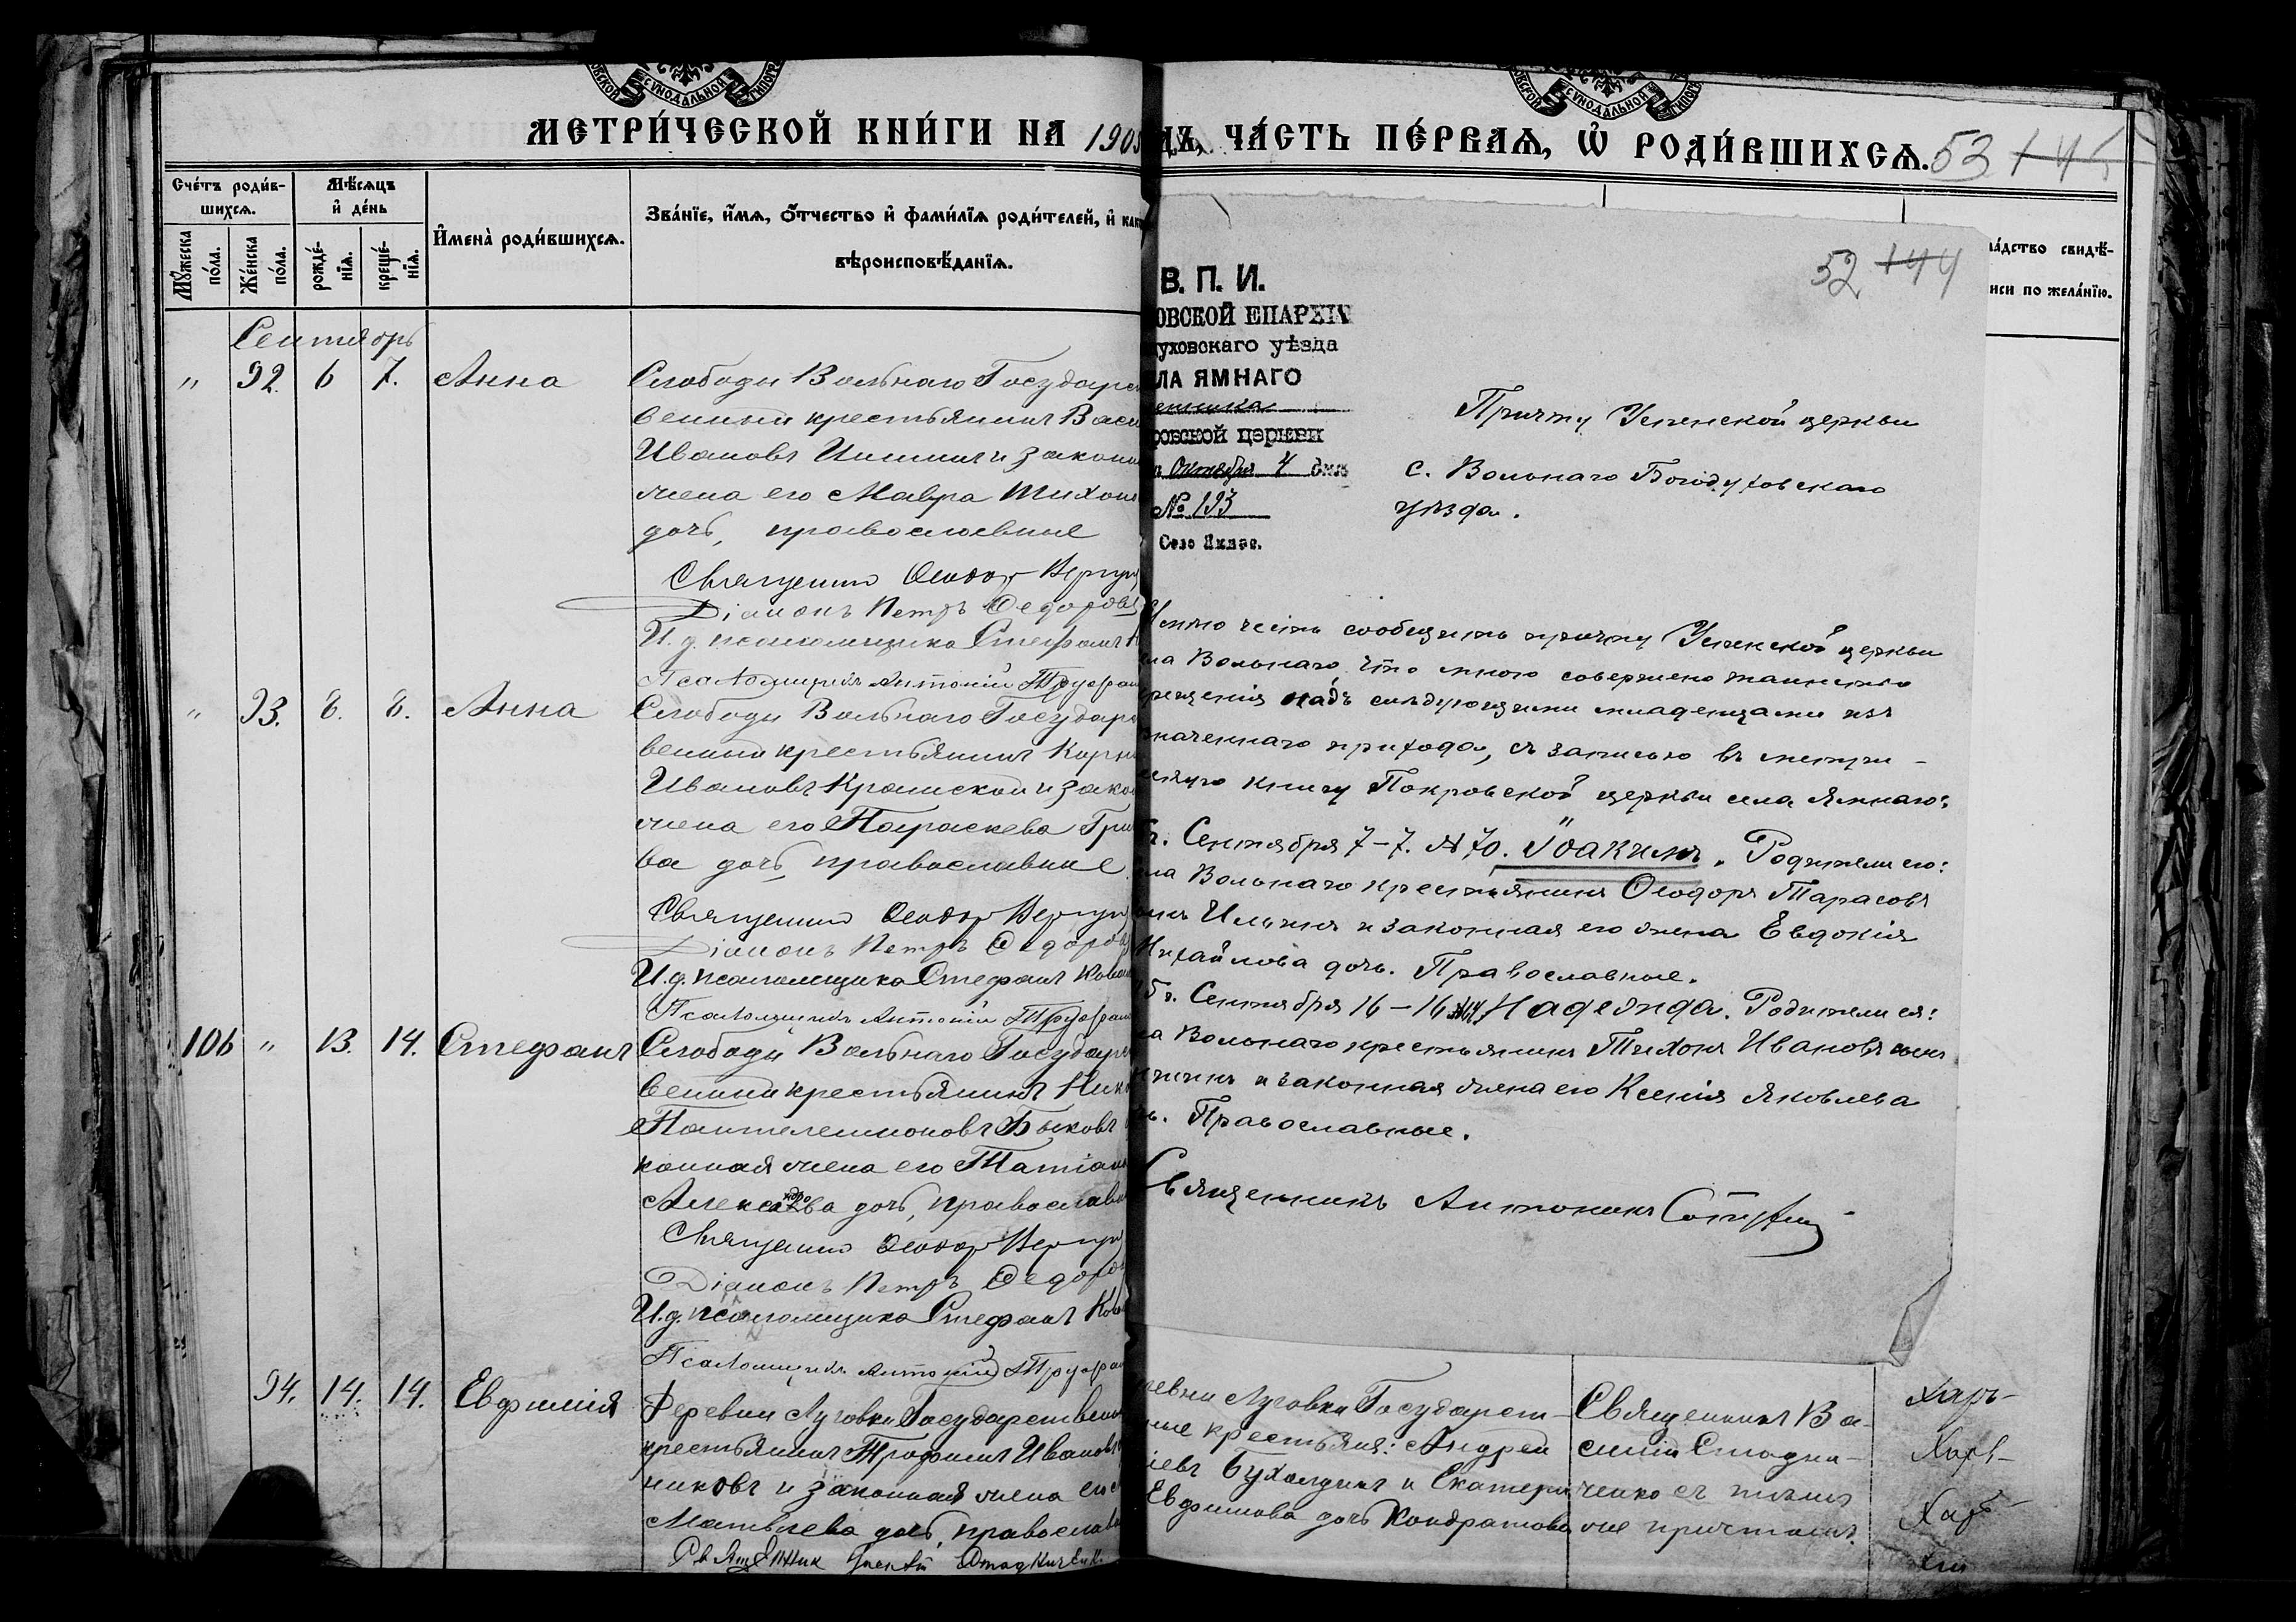 МЕТРИ́ЧЕСКОЙ КНИ́ГИ НА 1905
ДЪ, ЧА́СТЬ ПЕ́РВАѦ, Ѡ҆ РОДИ́ВШИХСѦ.
53
Сче́тъ роди́в-
шихсѧ.
Мѣ́сѧцъ
и҆ де́нь
Мꙋ́жеска
по́ла.
Же́нска
по́ла.
рожде́-
нїѧ.
креще́-
нїѧ.
И҆мена̀ роди́вшихсѧ.
Зва́нїе, и҆́мѧ, ѻ҆́тчество и҆ фами́лїѧ роди́телей, и҆ как
вѣроисповѣ́данїѧ.
Сентябрь
" 92. 6 7. Анна
Слободы Вольнаго Государст
венный крестьянинъ Васи
Ивановъ и законн
жена его Мавра Тихон
дочь, православные
Священник Ѳеодор
Діаконъ Петръ Ѳедоровъ
И. д. псаломщика Стефанъ
Псаломщикъ Антоній
" 93. 8. 8. Анна
Слободы Вольнаго Государст
венный крестьянинъ Корни
Ивановъ Крамской и закон
жена его Параскева Гри
ва дочь, православные
Священник Ѳеодор
Діаконъ Петръ Ѳедоров
И. д. псаломщика Стефанъ Кова
Псаломщикъ Антоній
106 " 13. 14. Стефанъ
Слободы Вольнаго Государст
венный крестьянинъ Ник
Пантелеимоновъ Быковъ
конная жена его Татіан
Александрова дочь, православн
Священник Ѳеодор
Діаконъ Петръ Ѳедоров
И. д. псаломщика Стефанъ Ков
Псаломщикъ Антоній
94. 14. 14. Евфимія
Деревни Луговки Государственн
крестьянинъ Трофимъ Ивановъ
никовъ и законная жена его
Матвѣева дочь, православн
Священник
ла́дство свидѣ́-
иси по жела́нїю.
52 144
В. П. И.
ОВСКОЙ ЕПАРХІИ
уховскаго уѣзда
ЛА ЯМНАГО
енника
ровской церкви
Октября 4 дня
№ 193
Село Ямное.
Причту Успенской церкви
с. Вольнаго Богодуховскаго
уѣзда.
Имѣю честь сообщить причту Успенской церкви
ла Вольнаго, что мною совершено таинство
рещенія надъ слѣдующими младенцами изъ
наченнаго прихода, съ записью въ метри-
ескую книгу Покровской церкви села Ямнаго:
Сентября 7–7. № 70. Іоакимъ. Родители его:
ла Вольнаго крестьянинъ Ѳеодоръ Тарасовъ
Ильинъ и законная его жена Евдокія
Михайлова дочь. Православные.
Сентября 16–16 Надежда. Родители ея:
ла Вольнаго крестьянинъ Тихонъ Ивановъ сынъ
и законная жена его Ксенія Яковлева
чь. Православные.
Священникъ Антонинъ
ревни Луговки Государст-
ные крестьяне: Андрей
іевъ и Екатери
Евфимова дочь Кондратова
Священникъ Ва-
силій Стадни-
ченко съ тѣмъ
же причтомъ.